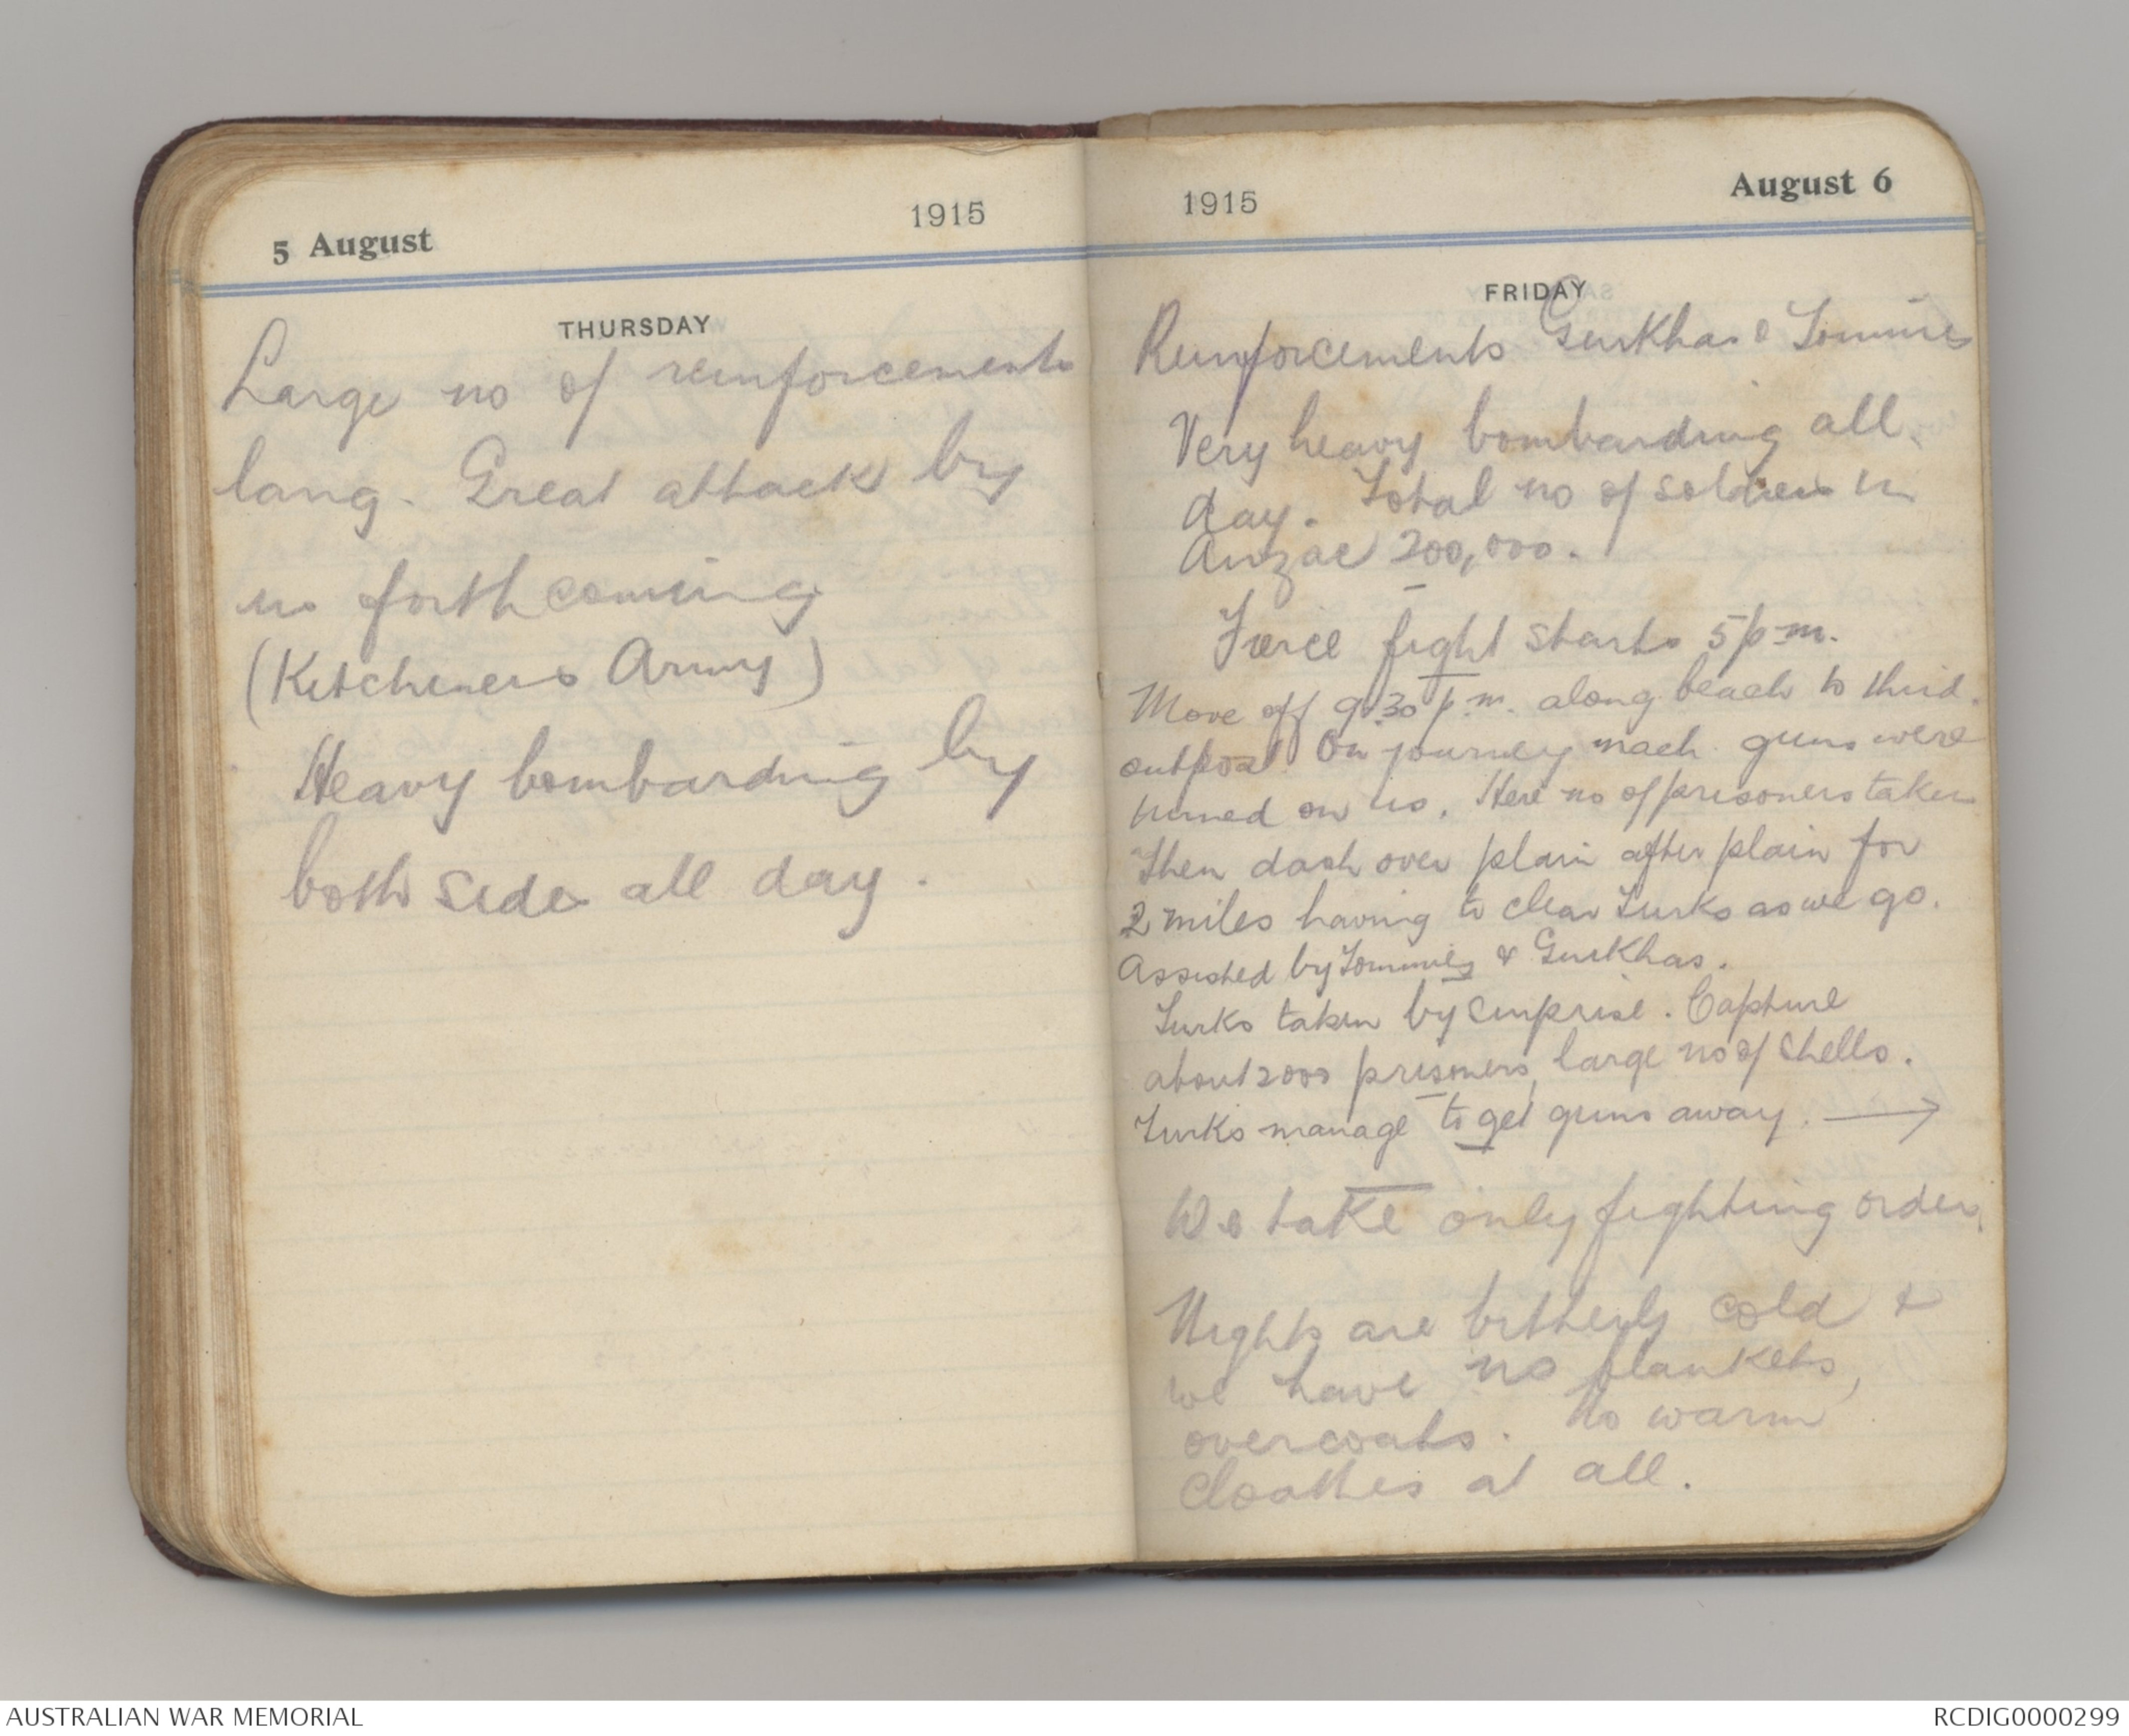 5 August
1915
THURSDAY
Large no of reinforcements
lang. Great attack by
us forthcoming
(Kitcheners Army)
Heavy bombarding by
both side all day.
1915
August 6
FRIDAY
Reinforcements Gurkhas & Tommies
Very heavy bombarding all
day. Total no of soldiers in
Anzac 200,000.
Fierce fight starts 5 p.m.
Move off 9.30 p.m. along beach to third
outpost. On journey mach. guns were
turned on us. Here no of prisoners taken
Then dash over plain after plain for
2 miles having to clear Turks as we go.
Assisted by Tommies & Gurkhas.
Turks taken by surprise. Capture
about 2000 prisoners, large no of shells.
Turks manage to get guns away. →
We take only fighting order.
Nights are bitterly cold &
we have no blankets,
overcoats. No warm
cloathes at all.
AUSTRALIAN WAR MEMORIAL
RCDIG0000299